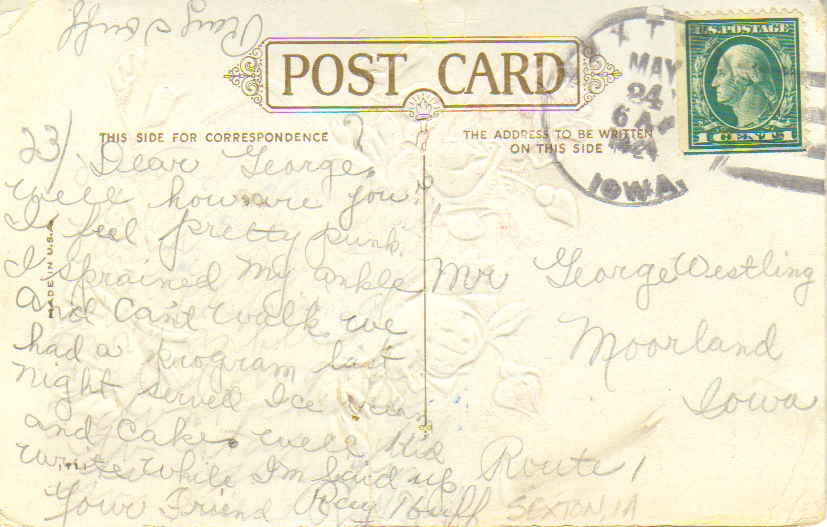 Ray Huff
POST CARD
THIS SIDE FOR CORRESPONDENCE
THE ADDRESS TO BE WRITTEN
ON THIS SIDE
MADE IN U.S.A.
U.S. POSTAGE
1 CENT 1
MAY
24
6 A
IOWA
23/ Dear George,
Well how are you?
I feel pretty punk.
I sprained my ankle
and can't walk we
had a program last
night served Ice cream
and cake. well
write while I'm laid up
Your Friend Ray Huff
Mr George Westling
Moorland
Iowa
Route 1
SEXTON, IA